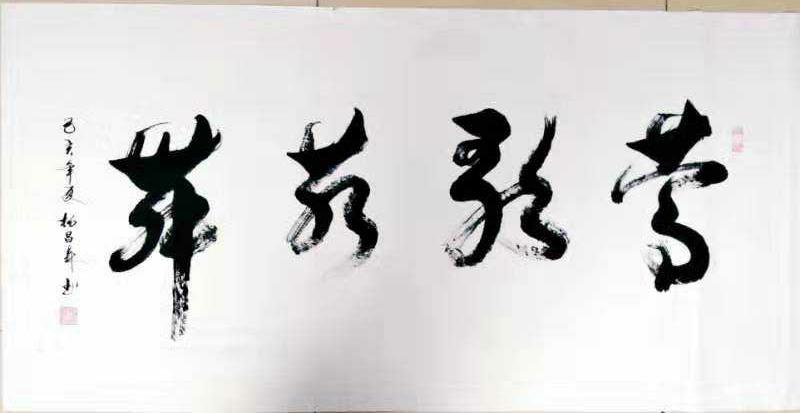 莺歌燕舞
己亥年夏 杨昌 书